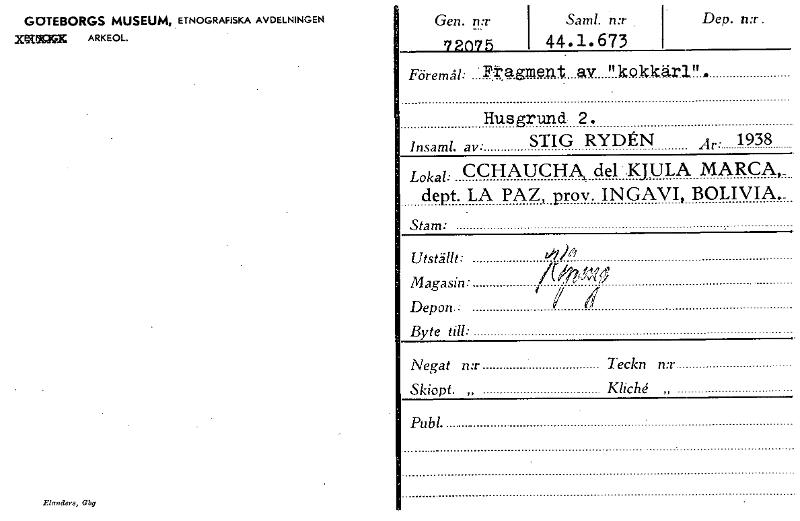 GÖTEBORGS MUSEUM, ETNOGRAFISKA AVDELNINGEN
ARKEOL.
Gen. n:r Saml. n:r Dep. n:r.
72075 44.1.673
Föremål: Fragment av "kokkärl".
Husgrund 2.
Insaml. av: STIG RYDÉN År: 1938
Lokal: CCHAUCHA, del KJULA MARCA,
dept. LA PAZ, prov. INGAVI, BOLIVIA.
Stam:
Utställt:
Magasin:
Depon.:
Byte till:
Negat n:r Teckn n:r
Skiopt. „ Kliché „
Publ.
Elanders, Gbg